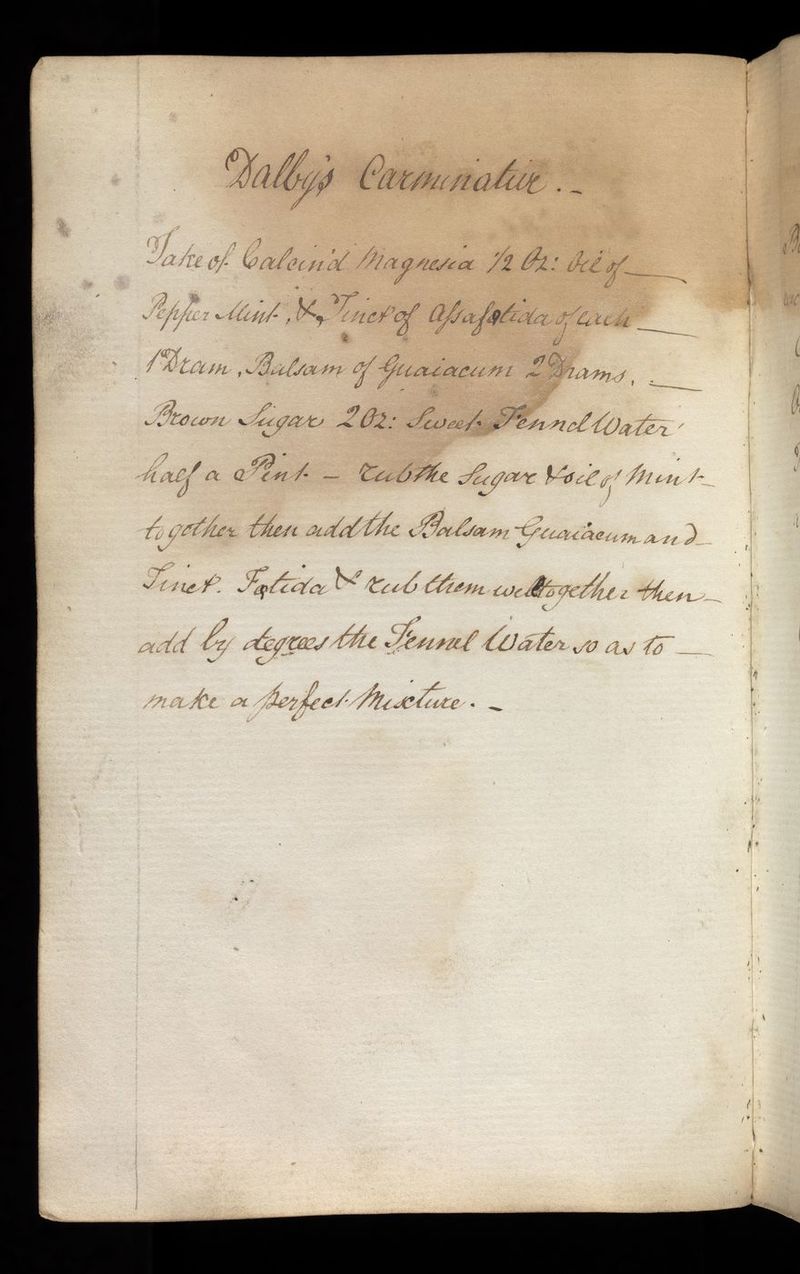 Dalby's Carminative . -
Take of Calcin'd Magnesia 1/2 Oz: Oil of
Pepper Mint , & Tinct of Assafœtida of each
1 Dram , Balsam of Guaiacum 2 Drams .
Brown Sugar 2 Oz: Sweet Fennel Water
half a Pint - rub the Sugar & oil of Mint
together then add the Balsam Guaiacum and
Tinct. Fœtida & rub them well together then
add by degrees the Fennel Water so as to
make a perfect Mixture . -